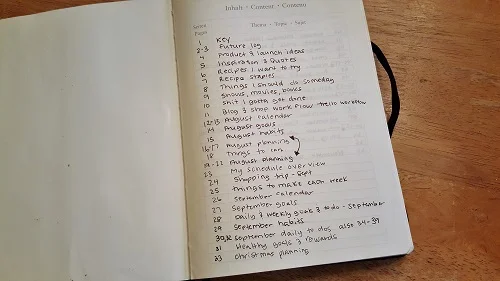 Inhalt · Content · Contenu
Seiten Thema · Topic · Sujet
Pages
1 Key
2-3 Future log
4 Product & launch ideas
5 Inspiration & Quotes
6 Recipes I want to try
7 Recipe staples
8 Things I should do someday
9 Shows, movies, books
10 Shit I gotta get done
11 Blog & shop work flow trello workflow
12-13 August calendar
14 August goals
15 August habits
16-17 August planning
18 Things to can
19-22 August planning
23 My schedule overview
24 Shopping trip - Sept
25 Things to make each week
26 September calendar
27 September goals
28 Daily & weekly goals & to do - September
29 September habits
30,32 September daily to dos also 34-39
31 Healthy goals & rewards
33 Christmas planning